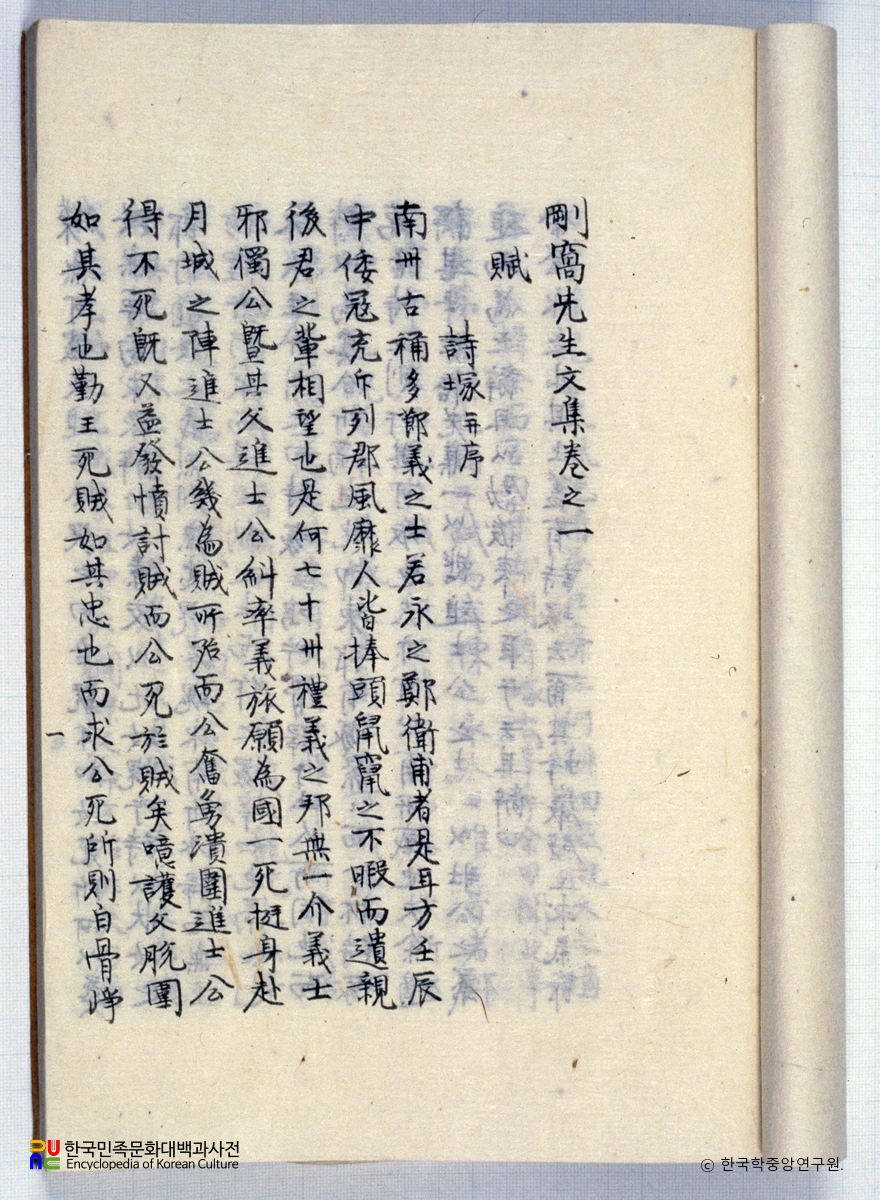 剛窩先生文集卷之一
賦
詩塚并序
南州古稱多節義之士若永之鄭衛甫者是耳方壬辰
中倭冦充斥列郡風靡人皆捧頭鼠竄之不暇而遺親
後君之輩相望也是何七十州禮義之邦無一介義士
邪獨公曁其父進士公糾率義旅願為國一死挺身赴
月城之陣進士公幾為賊所殆而公奮勇潰圍進士公
得不死旣又益發憤討賊而公死於賊矣噫護父脫圍
如其孝也勤王死賊如其忠也而求公死所則白骨崢
一
한국민족문화대백과사전
Encyclopedia of Korean Culture
© 한국학중앙연구원.